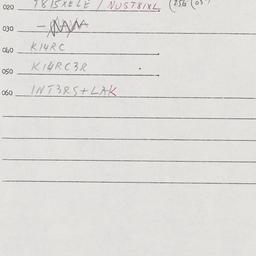 020 T815XELE / NUST81XL
030 -
040 K14RC
050 K14RC3R
060 INT3RS+LAK